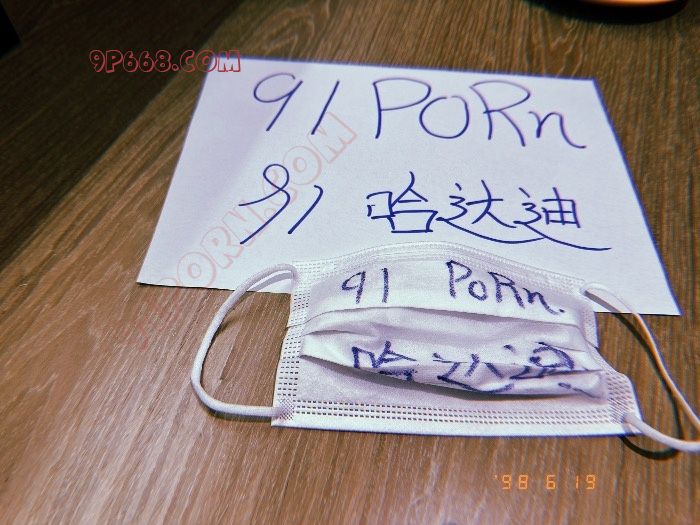 9P668.COM
91 PORn
91 哈达迪
91 PoRn.
哈达迪
'98 6 19